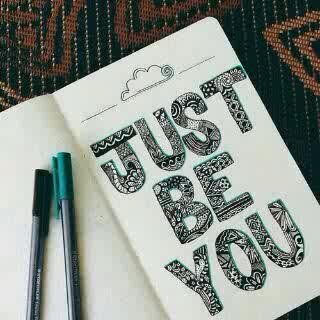 JUST
BE
YOU